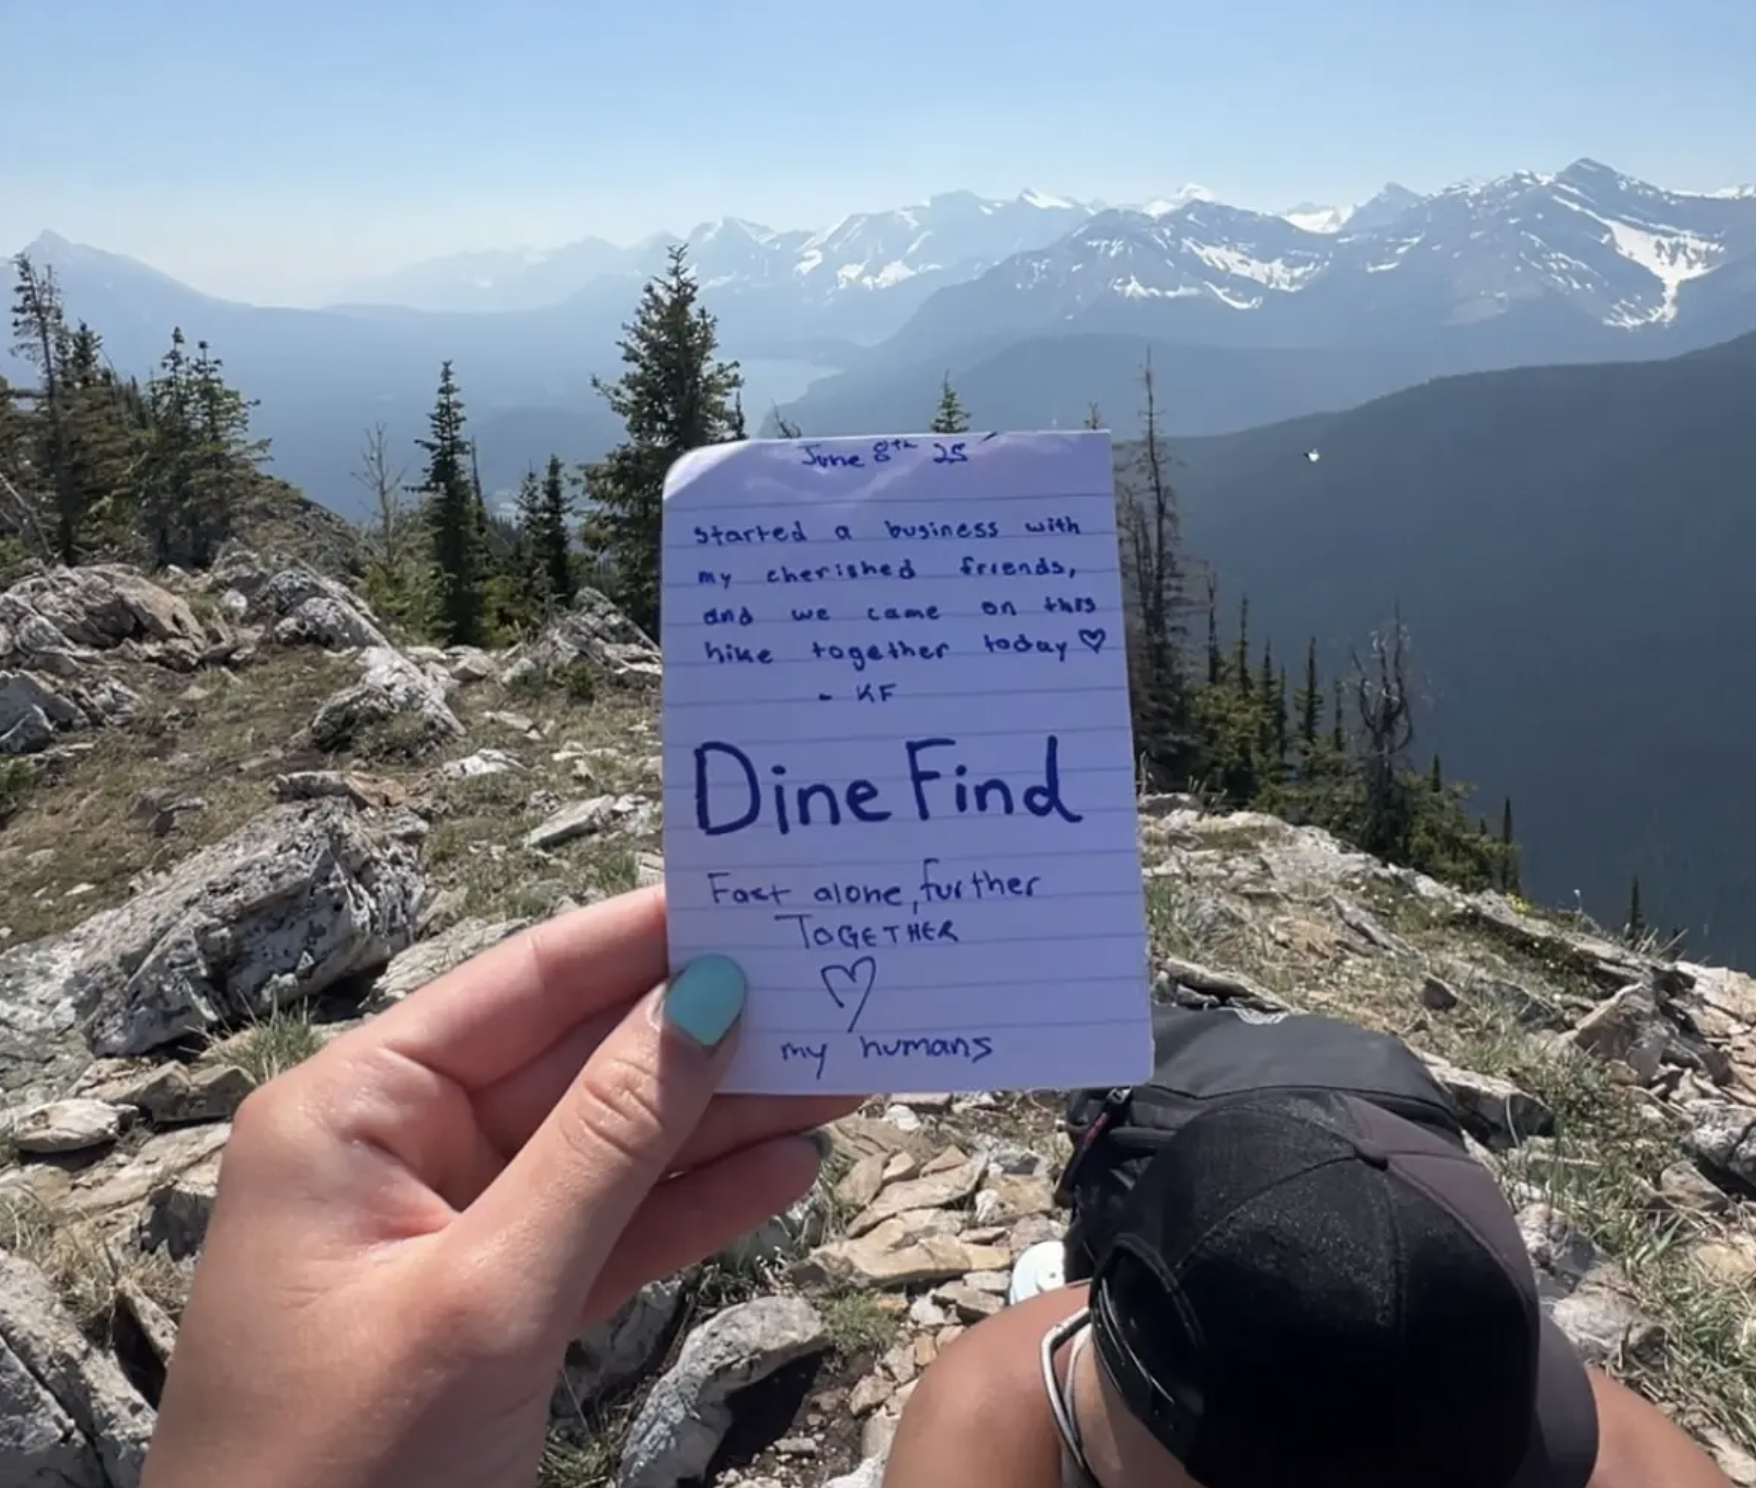 June 8th 25
started a business with
my cherished friends,
and we came on this
hike together today ♡
- KF
Dine Find
Fast alone, further
TOGETHER
♡
my humans